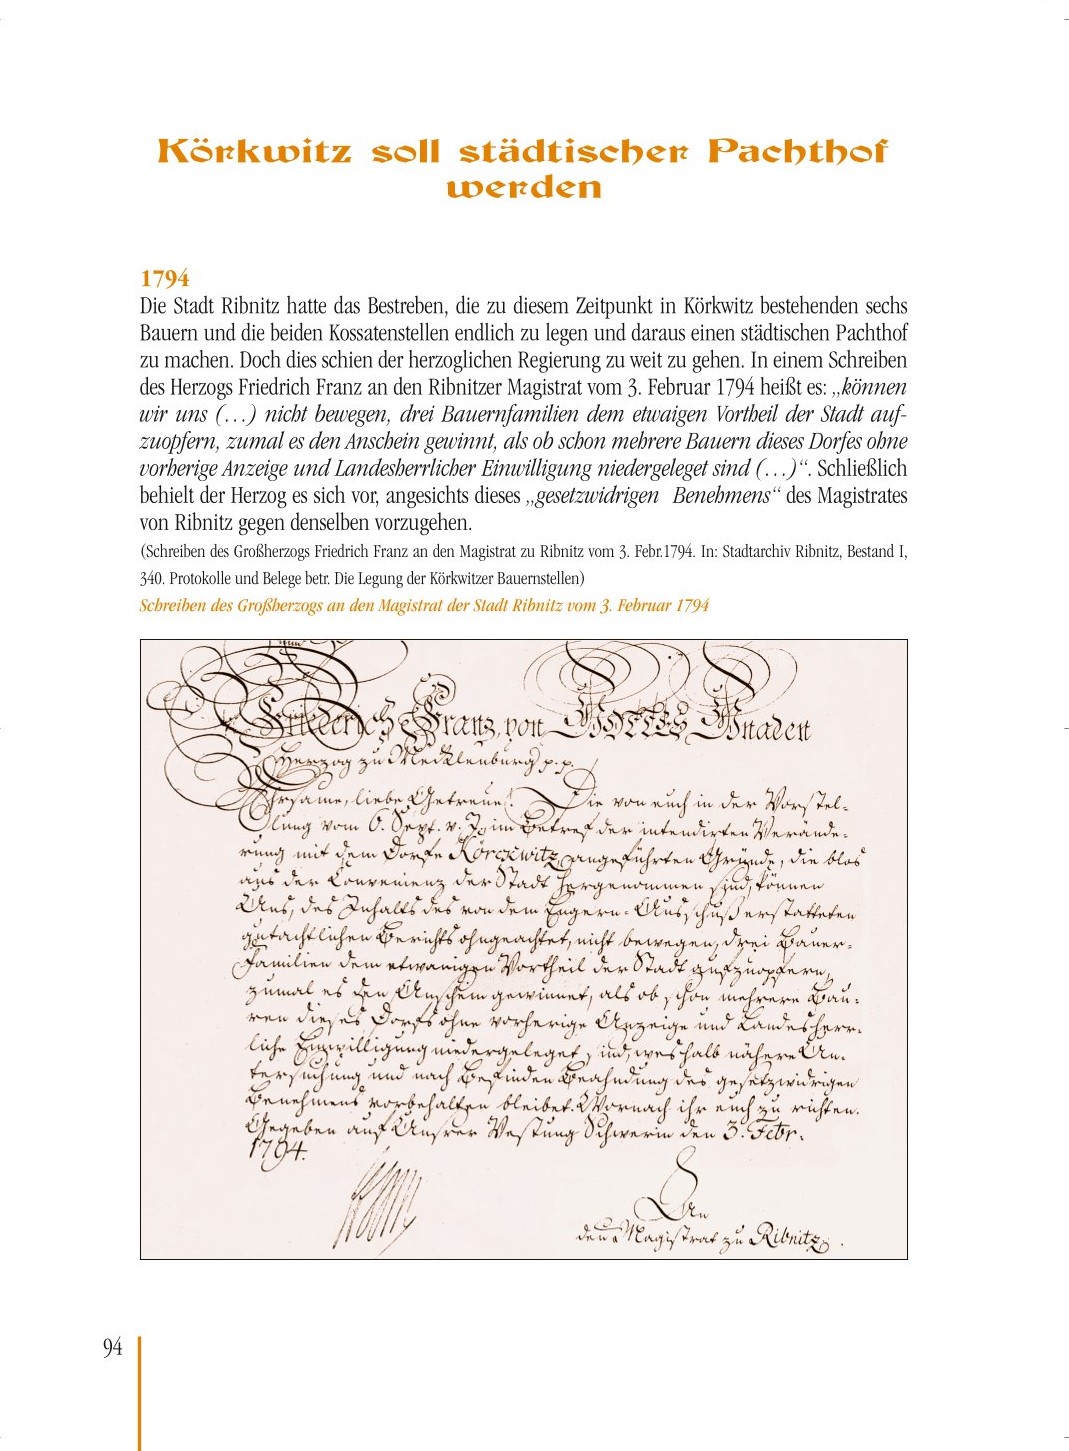 Körkwitz soll städtischer Pachthof
werden
1794
Die Stadt Ribnitz hatte das Bestreben, die zu diesem Zeitpunkt in Körkwitz bestehenden sechs
Bauern und die beiden Kossatenstellen endlich zu legen und daraus einen städtischen Pachthof
zu machen. Doch dies schien der herzoglichen Regierung zu weit zu gehen. In einem Schreiben
des Herzogs Friedrich Franz an den Ribnitzer Magistrat vom 3. Februar 1794 heißt es: „können
wir uns (…) nicht bewegen, drei Bauernfamilien dem etwaigen Vortheil der Stadt auf-
zuopfern, zumal es den Anschein gewinnt, als ob schon mehrere Bauern dieses Dorfes ohne
vorherige Anzeige und Landesherrlicher Einwilligung niedergeleget sind (…)“. Schließlich
behielt der Herzog es sich vor, angesichts dieses „gesetzwidrigen Benehmens“ des Magistrates
von Ribnitz gegen denselben vorzugehen.
(Schreiben des Großherzogs Friedrich Franz an den Magistrat zu Ribnitz vom 3. Febr.1794. In: Stadtarchiv Ribnitz, Bestand I,
340. Protokolle und Belege betr. Die Legung der Körkwitzer Bauernstellen)
Schreiben des Großherzogs an den Magistrat der Stadt Ribnitz vom 3. Februar 1794
Friederich Franz von GOTTES Gnaden
Herzog zu Mecklenburg p. p.
Ehrsame, liebe Getreue! Die von euch in der Vorstel-
lung vom 6. Sept. v. J. im Betref der intendirten Verände-
rung mit dem Dorfe Körckwitz angeführten Gründe, die blos
aus der Convenienz der Stadt hergenommen sind, können
Uns, des Inhalts des von dem Engern-Ausschuß erstatteten
gutachtlichen Berichts ohngeachtet, nicht bewegen, drei Bauer-
Familien dem etwanigen Vortheil der Stadt aufzuopfern,
zumal es den Anschein gewinnet, als ob schon mehrere Bau-
ren dieses Dorfs ohne vorherige Anzeige und Landesherr-
liche Einwilligung niedergeleget sind, weshalb nähere Un-
tersuchung und nach Befinden Beahndung des gesetzwidrigen
Benehmens vorbehalten bleibet. Wornach ihr euch zu richten.
Gegeben auf Unsrer Vestung Schwerin den 3. Febr.
1794.
An
den Magistrat zu Ribnitz.
94